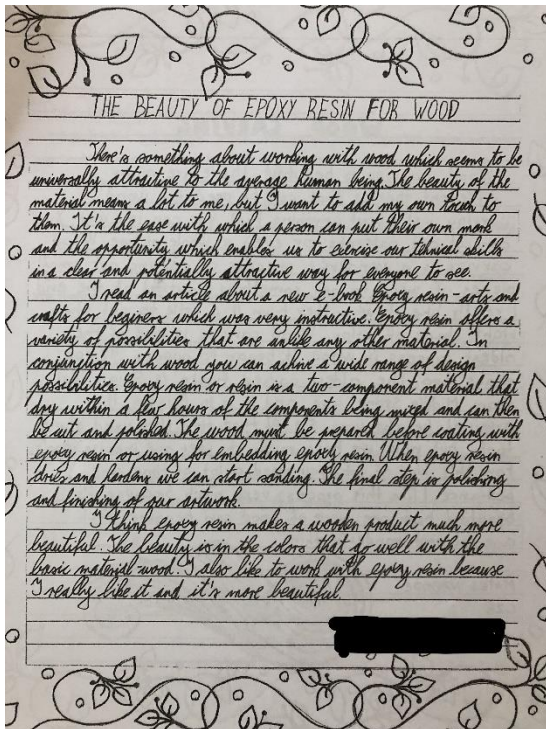 THE BEAUTY OF EPOXY RESIN FOR WOOD
There's something about working with wood which seems to be
universally attractive to the average human being. The beauty of the
material means a lot to me, but I want to add my own touch to
them. It's the ease with which a person can put their own mark
and the opportunity which enables us to exercise our tehnical skills
in a clear and potentially attractive way for everyone to see.
I read an article about a new e-book Epoxy resin-arts and
crafts for beginers which was very instructive. Epoxy resin offers a
variety of possibilities that are unlike any other material. In
conjunction with wood you can achive a wide range of design
possibilities. Epoxy resin or resin is a two-component material that
dry within a few hours of the components being mixed and can then
be cut and polished. The wood must be prepared before coating with
epoxy resin or using for embedding epoxy resin. When epoxy resin
dries and hardens we can start sanding. The final step is polishing
and finishing of our artwork.
I think epoxy resin makes a wooden product much more
beautiful. The beauty is in the colors that go well with the
basic material wood. I also like to work with epoxy resin because
I really like it and it's more beautiful.